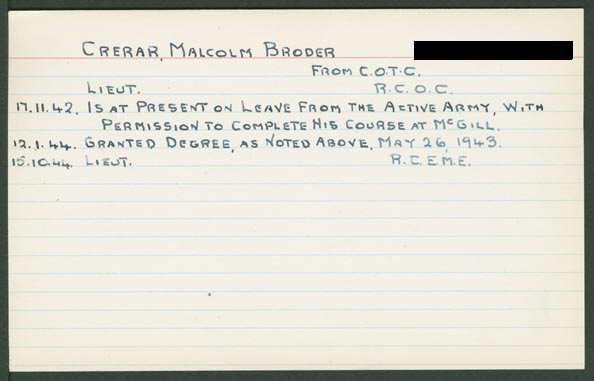 CRERAR, MALCOLM BRODER
FROM C.O.T.C.
LIEUT. R.C.O.C.
17.11.42. IS AT PRESENT ON LEAVE FROM THE ACTIVE ARMY, WITH
PERMISSION TO COMPLETE HIS COURSE AT MCGILL.
12.1.44. GRANTED DEGREE, AS NOTED ABOVE, MAY 26, 1943.
15.10.44. LIEUT. R.C.E.M.E.